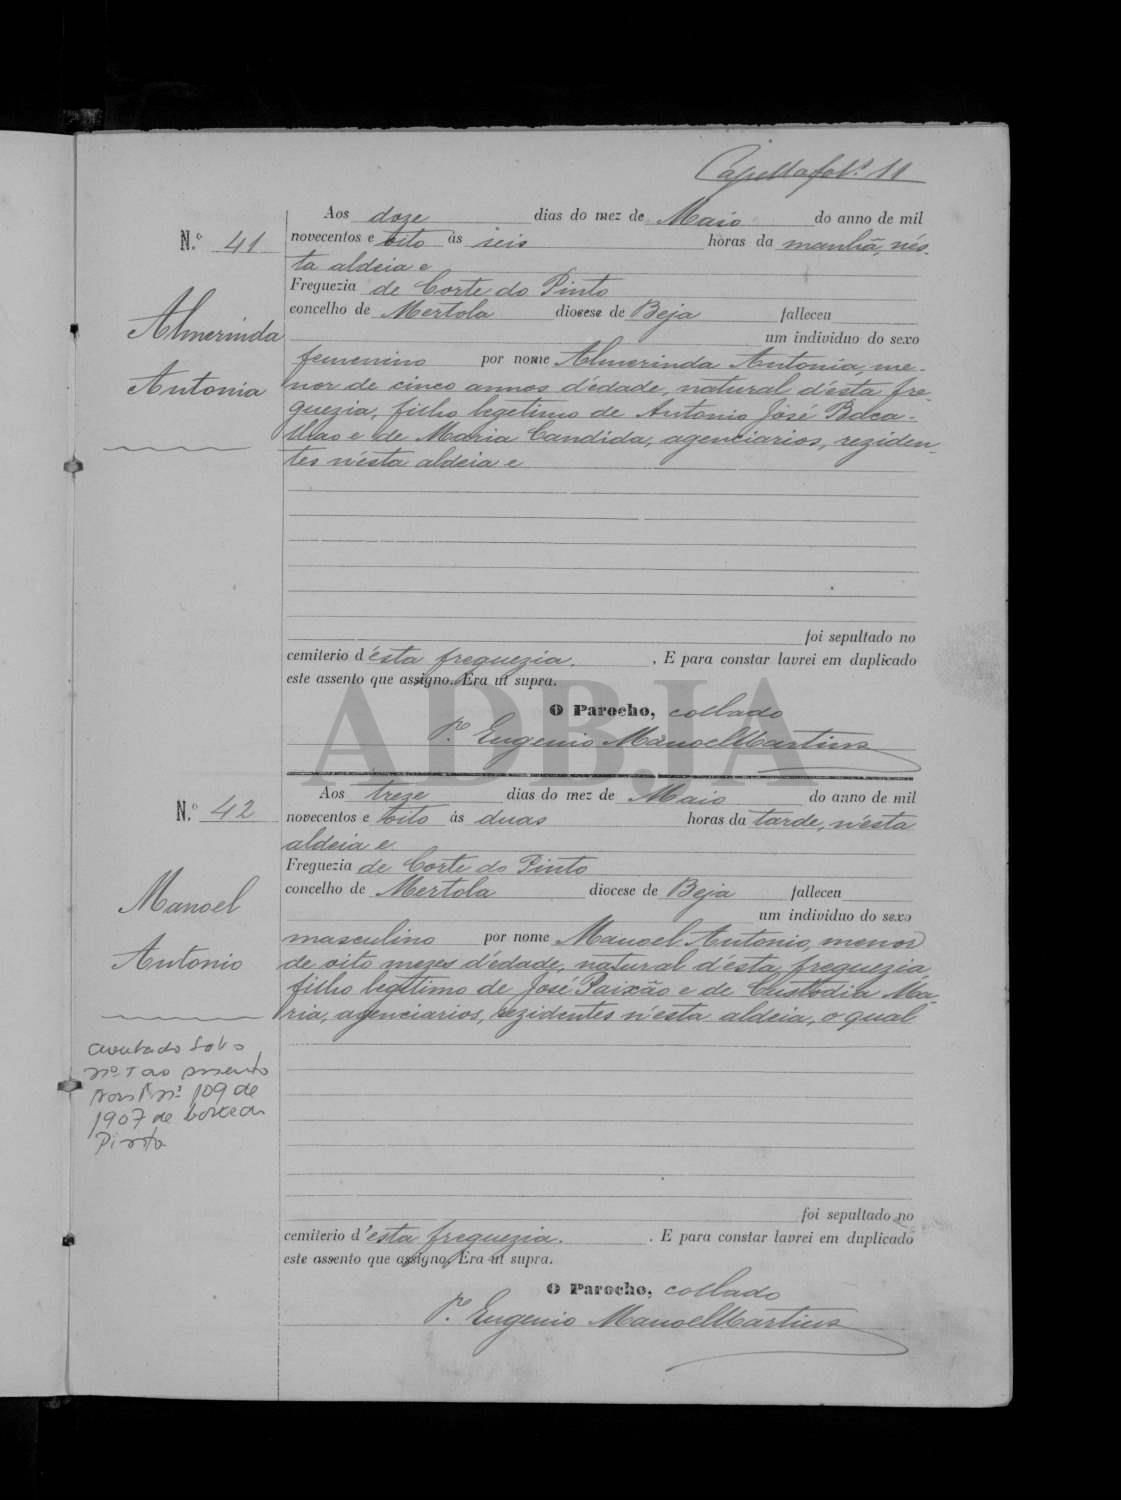 Capella fol. 11
Aos doze dias do mez de Maio do anno de mil
N.º 41
novecentos e oito ás seis horas da manhã, nés-
ta aldeia e
Freguezia de Corte do Pinto
concelho de Mertola diocese de Beja falleceu
Almerinda
um individuo do sexo
femenino por nome Almerinda Antonia, me-
Antonia
nor de cinco annos d'édade, natural d'ésta fre-
guezia, filho legetimo de Antonio José Baca-
lhao e de Maria Candida, agenciarios, reziden-
tes n'ésta aldeia e
foi sepultado no
cemiterio d'ésta freguezia. . E para constar lavrei em duplicado
este assento que assigno. Era ut supra.
ADBJA
O Parocho, collado
P.e Eugenio Manoel Martins
Aos treze dias do mez de Maio do anno de mil
N.º 42
novecentos e oito ás duas horas da tarde, n'ésta
aldeia e
Freguezia de Corte do Pinto
concelho de Mertola diocese de Beja falleceu
Manoel
um individuo do sexo
masculino por nome Manoel Antonio, menor
Antonio
de oito mezes d'édade, natural d'ésta freguezia,
filho legitimo de José Paixão e de Custodia Ma-
ria, agenciarios, rezidentes n'ésta aldeia, o qual
averbado sob o
nº 1 ao assento
nº 109 de
1907 de Corte do
Pinto
foi sepultado no
cemiterio d'ésta freguezia. . E para constar lavrei em duplicado
este assento que assigno. Era ut supra.
O Parocho, collado
P.e Eugenio Manoel Martins